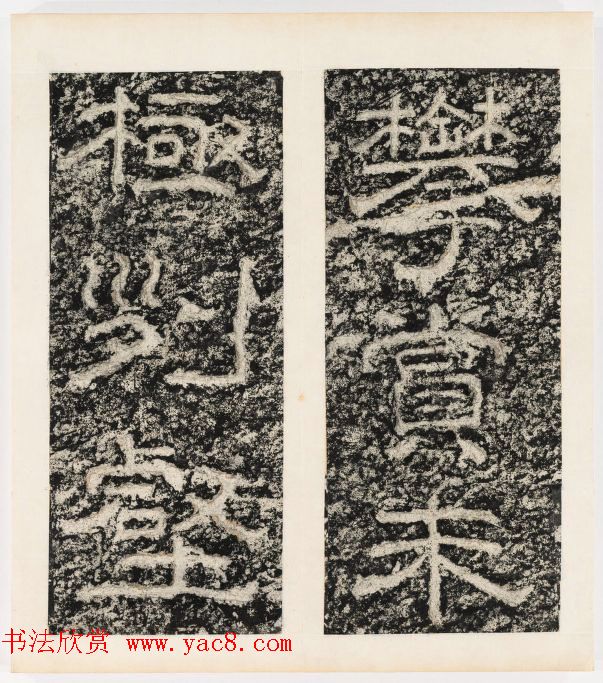 攀賞未
極列壑
书法欣赏 www.yac8.com